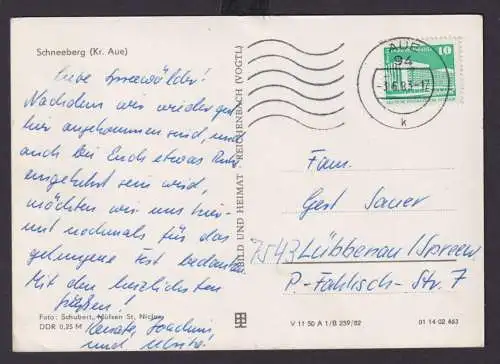 Schneeberg (Kr. Aue)
Liebe Spreewälder!
Nachdem wir wieder gut
hier angekommen sind, und
auch bei Euch etwas Ruhe
eingekehrt sein wird,
möchten wir uns hier-
mit nochmals für das
gelungene Fest bedanken.
Mit den herzlichsten
Grüßen!
Renate, Joachim
und
Foto: Schubert, Mülsen St. Niclas
DDR 0,25 M
BILD UND HEIMAT REICHENBACH (VOGTL)
AUE
94
-8.6.83-17
k
10
Fam.
Gert Sauer
7543 Lübbenau/Spreew.
P.-Fahlisch-Str. 7
V 11 50 A 1/B 259/82
01 14 02 463